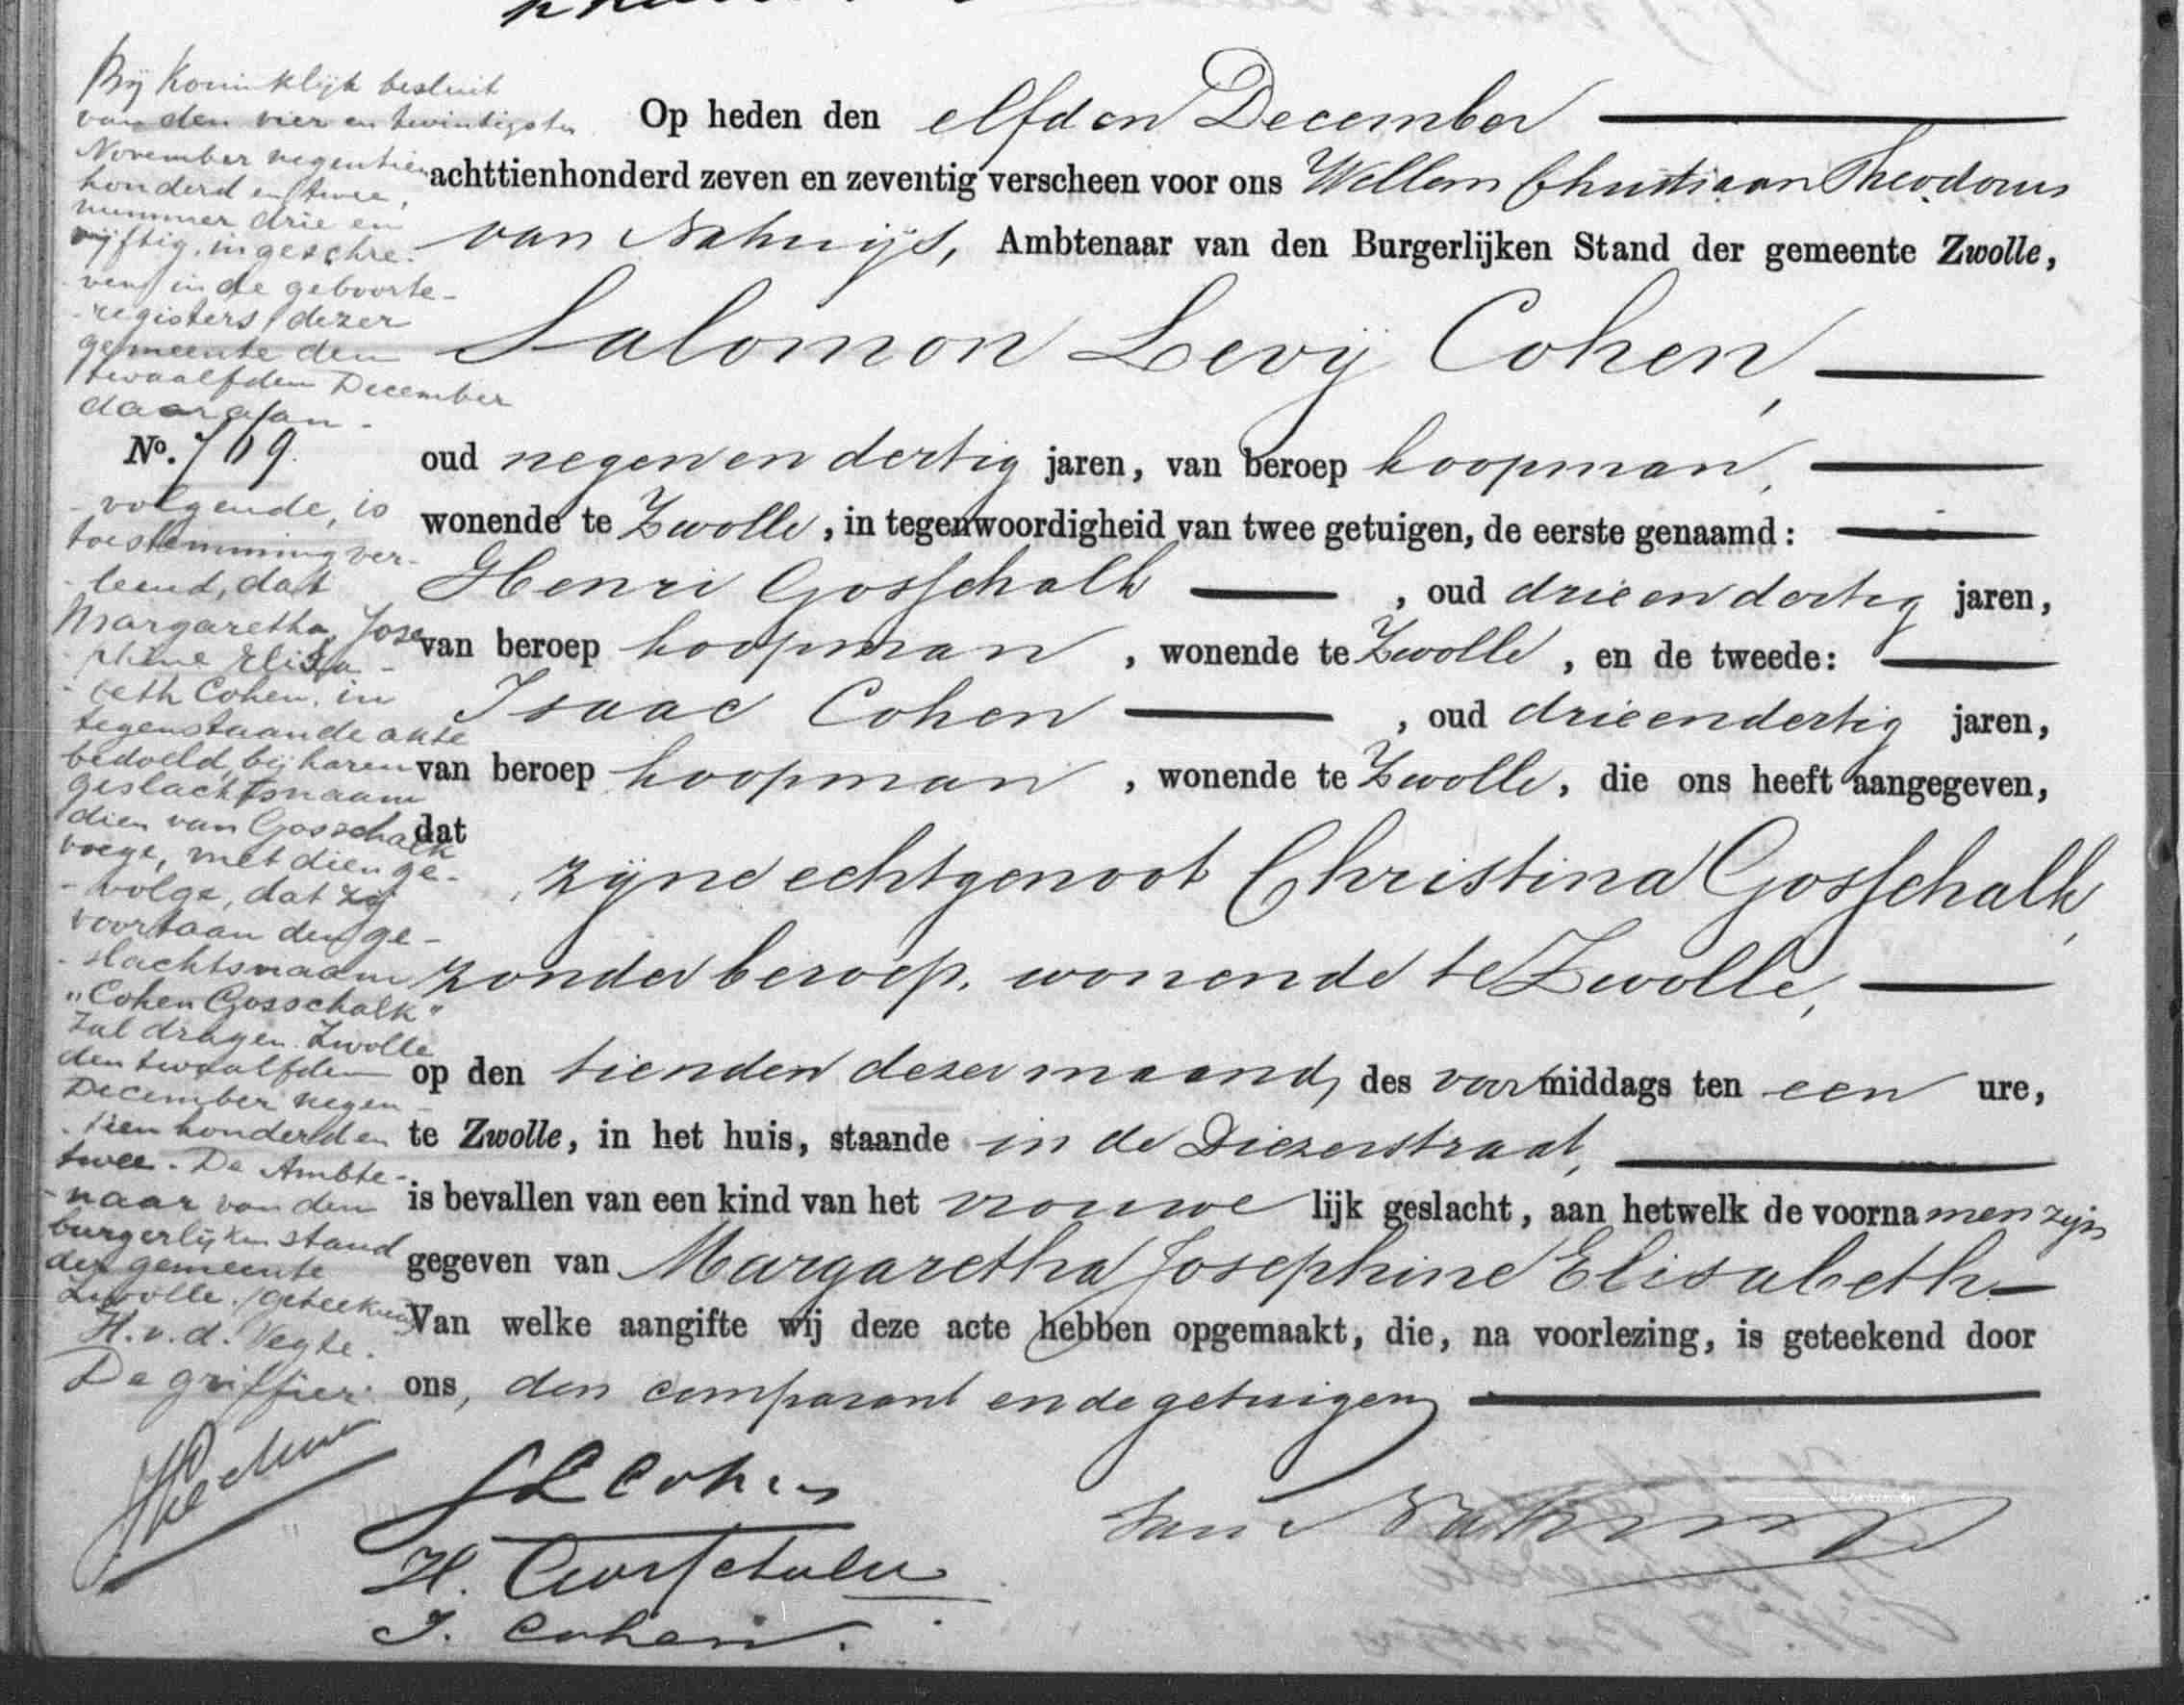 Bij Koninklijk besluit
van den vier en twintigsten
November negentien
honderd en twee,
nummer drie en
vijftig, ingeschre-
ven in de geboorte-
registers dezer
gemeente den
twaalfden December
daaraan-
No. 709.
- volgende, is
toestemming ver-
- leend, dat
Margaretha, Jose-
phine Elisa-
- beth Cohen, in
tegenstaande akte
bedoeld, bij haren
geslachtsnaam
dien van Gosschalk
voege, met dien ge-
- volge, dat zij
voortaan den ge-
- slachtsnaam
"Cohen Gosschalk"
zal dragen. Zwolle
den twaalfden
December negen-
- tien honderd en
twee. De Ambte-
- naar van den
burgerlijken stand
der gemeente
Zwolle. (geteekend)
H. v. d. Vegte.
De griffier.
Op heden den elfden December
achttienhonderd zeven en zeventig verscheen voor ons Willem Christiaan Theodorus
van Nahuijs, Ambtenaar van den Burgerlijken Stand der gemeente Zwolle,
Salomon Levij Cohen,
oud negen en dertig jaren, van beroep koopman,
wonende te Zwolle, in tegenwoordigheid van twee getuigen, de eerste genaamd:
Henri Gosschalk, oud drie en dertig jaren,
van beroep koopman, wonende te Zwolle, en de tweede:
Isaac Cohen, oud drie en dertig jaren,
van beroep koopman, wonende te Zwolle, die ons heeft aangegeven,
dat
zijne echtgenoot Christina Gosschalk,
zonder beroep, wonende te Zwolle,
op den tienden dezer maand, des voormiddags ten een ure,
te Zwolle, in het huis, staande in de Diezerstraat,
is bevallen van een kind van het vrouwelijk geslacht, aan hetwelk de voornamen zijn
gegeven van Margaretha Josephine Elisabeth
Van welke aangifte wij deze acte hebben opgemaakt, die, na voorlezing, is geteekend door
ons, den comparant en de getuigen
S L Cohen
van Nahuijs
H. Gosschalk
I. Cohen.